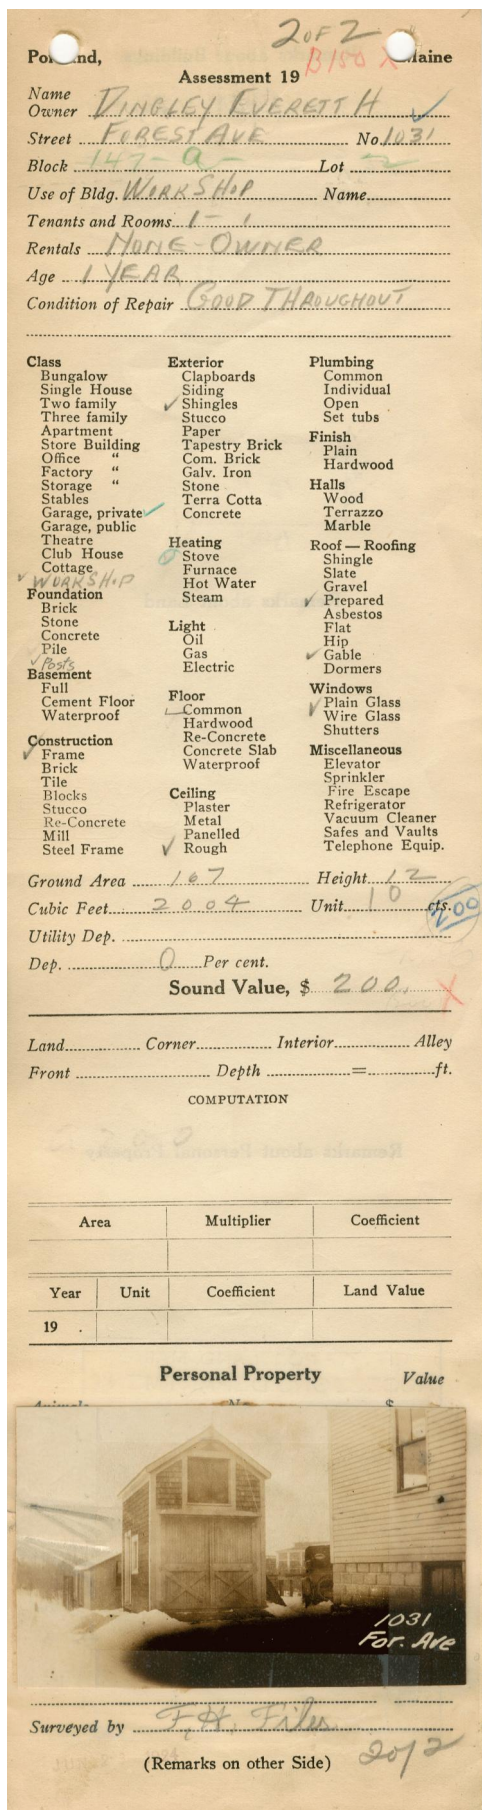 2 OF 2
Portland, B150 X Maine
Assessment 19
Name
Owner DINGLEY EVERETT H
Street FOREST AVE No. 1031
Block 147-a- Lot 2
Use of Bldg. WORKSHOP Name
Tenants and Rooms 1 - 1
Rentals NONE-OWNER
Age 1 YEAR
Condition of Repair GOOD THROUGHOUT
Class
Bungalow
Single House
Two family
Three family
Apartment
Store Building
Office "
Factory "
Storage "
Stables
Garage, private
Garage, public
Theatre
Club House
Cottage
WORKSHOP
Foundation
Brick
Stone
Concrete
Pile
Posts
Basement
Full
Cement Floor
Waterproof
Construction
Frame
Brick
Tile
Blocks
Stucco
Re-Concrete
Mill
Steel Frame
Exterior
Clapboards
Siding
Shingles
Stucco
Paper
Tapestry Brick
Com. Brick
Galv. Iron
Stone
Terra Cotta
Concrete
Heating
Stove
Furnace
Hot Water
Steam
Light
Oil
Gas
Electric
Floor
Common
Hardwood
Re-Concrete
Concrete Slab
Waterproof
Ceiling
Plaster
Metal
Panelled
Rough
Plumbing
Common
Individual
Open
Set tubs
Finish
Plain
Hardwood
Halls
Wood
Terrazzo
Marble
Roof — Roofing
Shingle
Slate
Gravel
Prepared
Asbestos
Flat
Hip
Gable
Dormers
Windows
Plain Glass
Wire Glass
Shutters
Miscellaneous
Elevator
Sprinkler
Fire Escape
Refrigerator
Vacuum Cleaner
Safes and Vaults
Telephone Equip.
Ground Area 167 Height 12
Cubic Feet 2004 Unit 10 cts. 200
Utility Dep.
Dep. 0 Per cent.
Sound Value, $ 200. X
Land Corner Interior Alley
Front Depth = ft.
COMPUTATION
Area Multiplier Coefficient
Year Unit Coefficient Land Value
19 .
Personal Property Value
1031
For. Ave
Surveyed by F. H. Files
(Remarks on other Side) 2 of 2